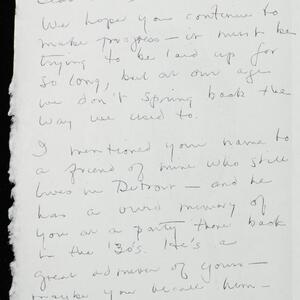 We hope you continue to
make progress — it must be
trying to be laid up for
so long, but at our age
we don't spring back the
way we used to.
I mentioned your name to
a friend of mine who still
lives in Detroit — and he
has a vivid memory of
you at a party there back
in the '30s. He's a
great admirer of yours —
maybe you recall him —